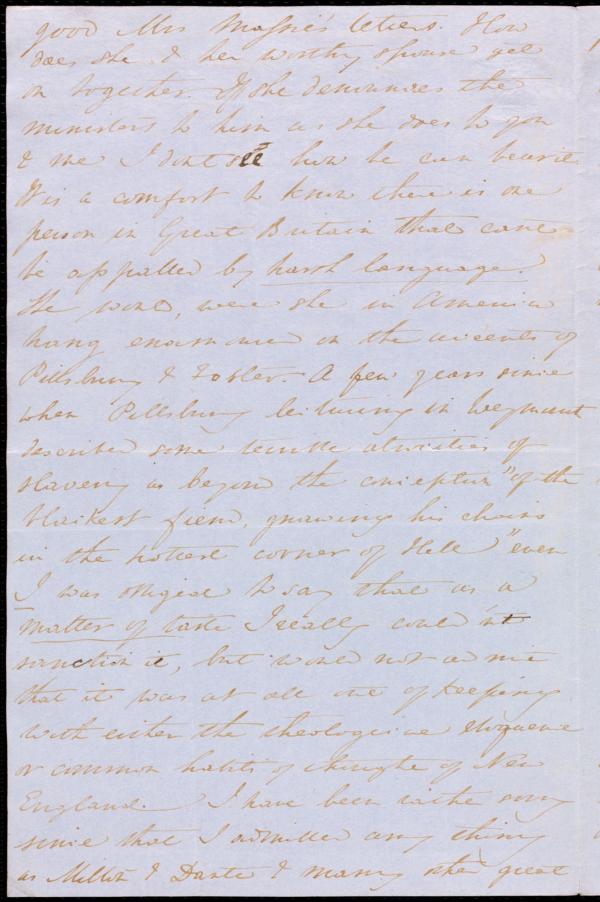 good Mrs Massie's letters. How
does she & her worthy spouse get
on together. If she denounces the
ministers to him as she does to you
& me I dont see how he can bear it
It is a comfort to know there is one
person in Great Britain that cant
be appalled by harsh language.
She would, were she in America
hang enamoured on the accents of
Pillsbury & Foster. A few years since
when Pillsbury lecturing in Weymouth
described some terrible atrocities of
slavery as beyond the conception "of the
blackest fiend, gnawing his chains
in the hottest corner of Hell" even
I was obliged to say that as a
matter of taste I really could'nt
sanction it, but would not admit
that it was at all out of keeping
with either the theological eloquence
or common habits of thought of New
England. I have been rather sorry
since that I admitted any thing
as Milton & Dante & many other great